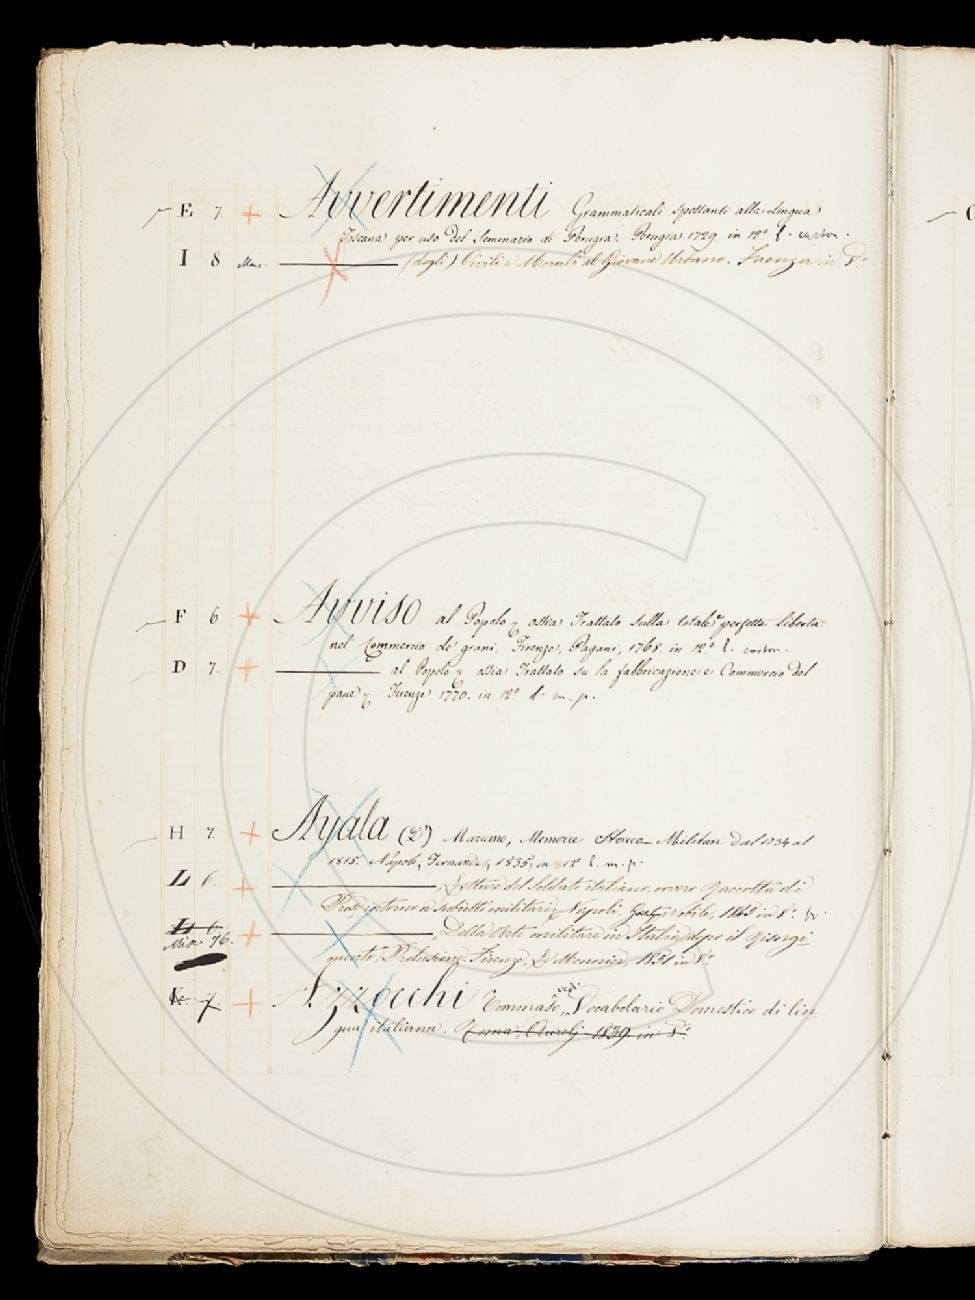 E 7. + Avvertimenti Grammaticali spettanti alla Lingua
Toscana per uso del Seminario di Perugia. Perugia 1729 in 12° l. carton.
I 8 (degli) Civili e Morali al Giovane Urbano. Faenza in 8°
F 6 + Avviso al Popolo, ossia Trattato sulla totale e perfetta libertà
nel Commercio de' grani. Firenze, Pagani, 1768. in 12° l. carton.
D 7. + al Popolo, ossia Trattato su la fabbricazione e Commercio del
pane, Firenze 1770. in 12° l. m. p.
H 7. + Ayala (D') Mariano, Memorie Storico Militari dal 1734 al
1815. Napoli, Fernandes, 1835, in 12° l. m. p.
L 6. + , Letture del Soldato italiano, ovvero Raccolta di
Prose intorno a subietti militari, Napoli, 1845 in 8°.
L 6.
Mis. 76. + , Della Arte militare in Italia dopo il Risorgi-
mento, Prolusione. Firenze, Le Monnier, 1851 in 8°
K 7. + Azzocchi Tommaso, vedi Vocabolario Domestico di lin-
gua italiana. Roma, Aurelj 1839. in 8°.
G